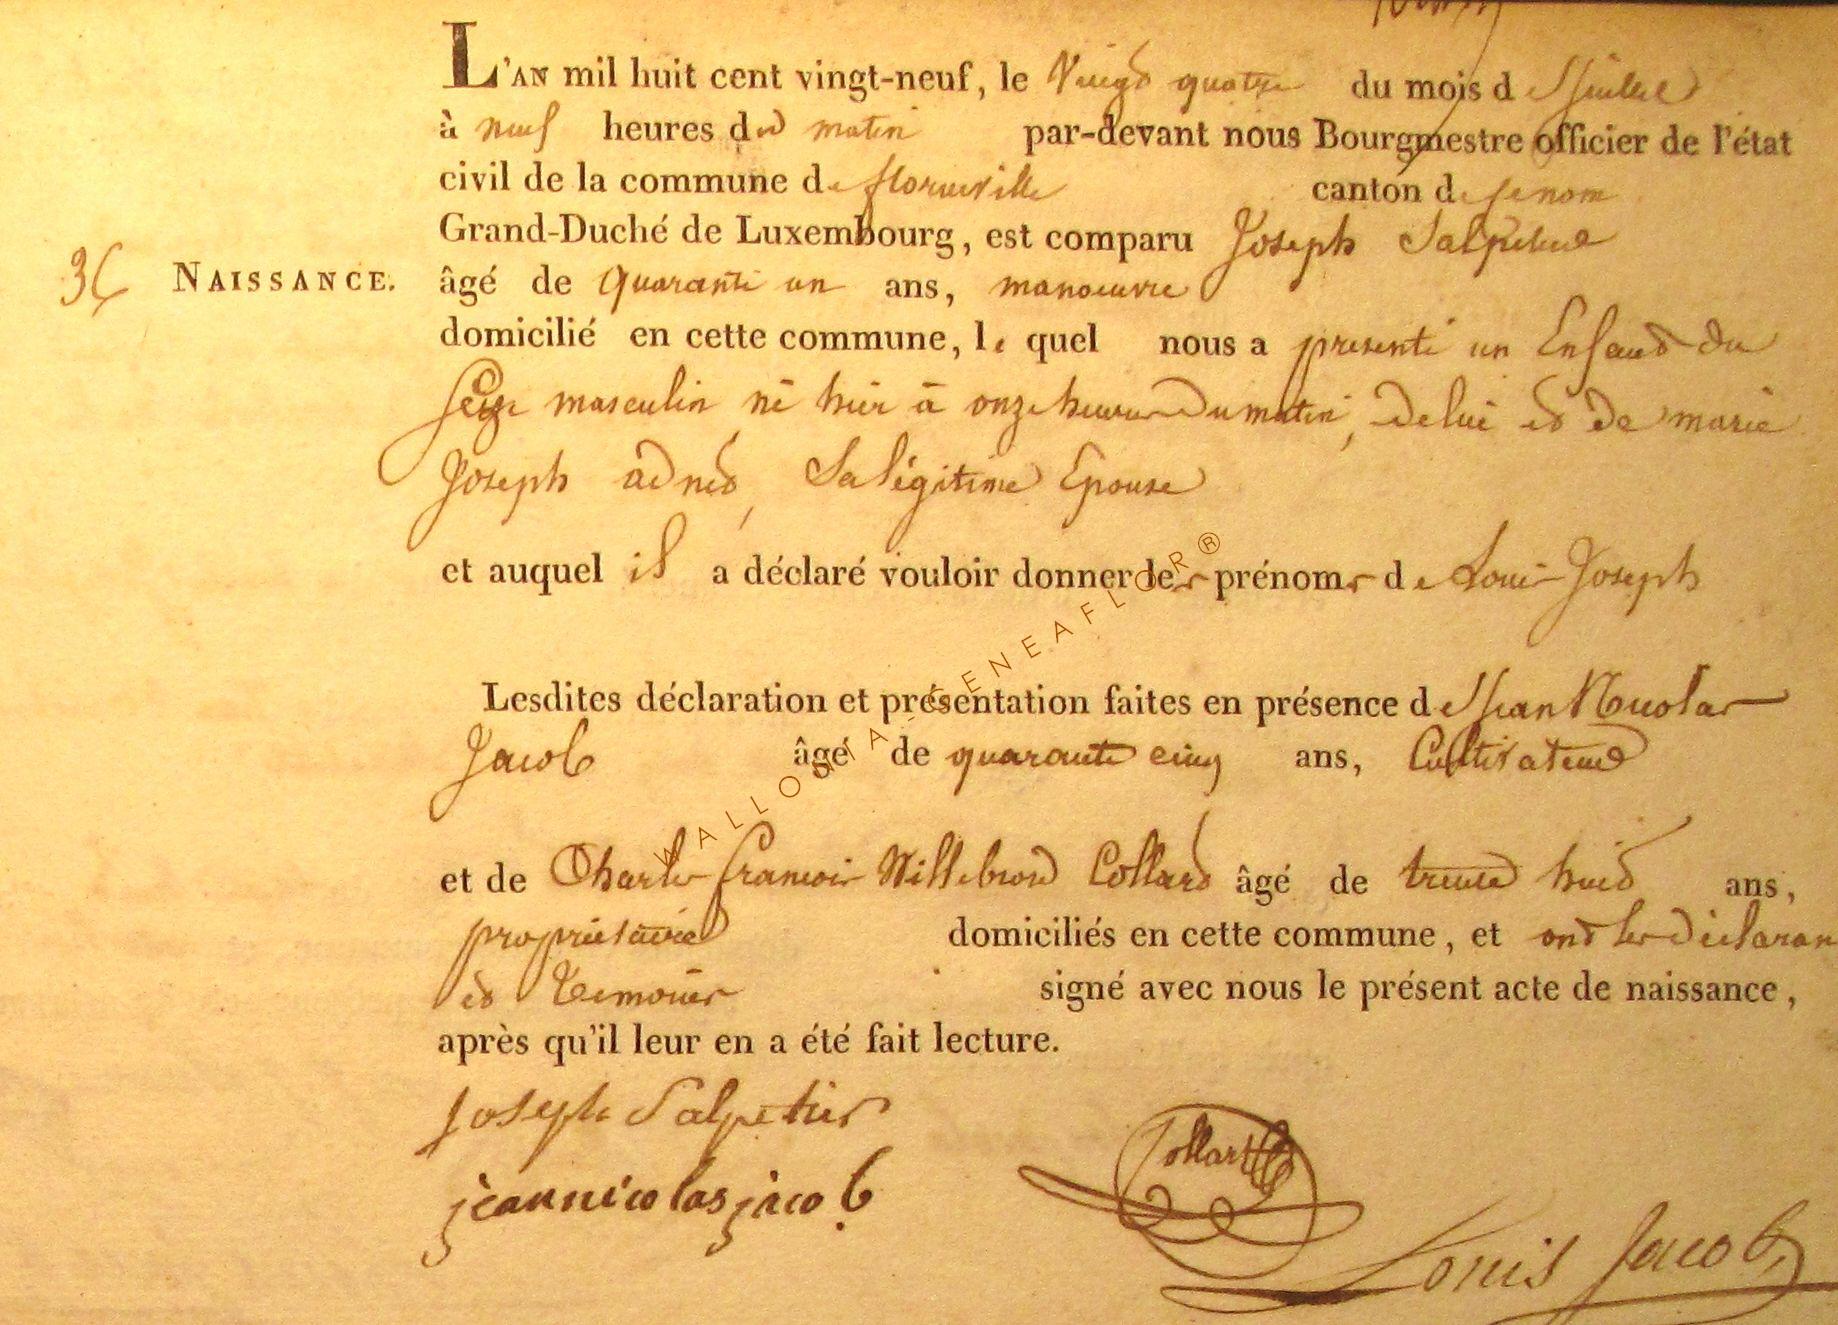 L'AN mil huit cent vingt-neuf, le Vingt quatre du mois de Juillet
à neuf heures du matin par-devant nous Bourgmestre officier de l'état
civil de la commune de florenville canton de ce nom
Grand-Duché de Luxembourg, est comparu Joseph Salpetier
36 NAISSANCE. âgé de quarante un ans, manoeuvre
domicilié en cette commune, le quel nous a presenté un Enfant du
Sexe masculin né hier à onze heures du matin, de lui et de marie
Joseph adnet, Sa légitime Epouse
et auquel il a déclaré vouloir donner les prénoms de Louis Joseph
Lesdites déclaration et présentation faites en présence de Jean Nicolas
Jacob âgé de quarante cinq ans, Cultivateur
et de Charles francois Willebrord Collard âgé de trente huit ans,
propriétaire domiciliés en cette commune, et ont les déclarant
et temoins signé avec nous le présent acte de naissance,
après qu'il leur en a été fait lecture.
joseph Salpetier
Collart
jean nicolas jacob
Louis Jacob
WALLONIA GENEAFLOR®